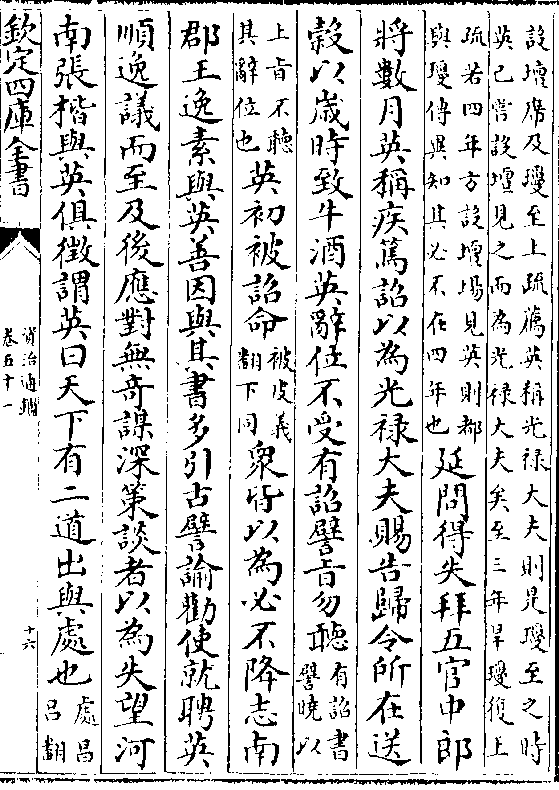 設壇席及瓊至上疏薦英稱光禄大夫則是瓊至之時
英已嘗設壇見之而為光禄大夫矣至三年旱瓊復上
疏若四年方設壇場見英則都
與瓊傳異知其必不在四年也
延問得失拜五官中郎
將數月英稱疾篤詔以為光禄大夫賜告歸令所在送
穀以歳時致牛酒英辭位不受有詔譬㫖勿聽
有詔書
譬曉以
上㫖不聽
其辭位也
英初被詔命
被皮義
翻下同
衆皆以為必不降志南
郡王逸素與英善因與其書多引古譬諭勸使就聘英
順逸議而至及後應對無奇謀深策談者以為失望河
南張楷與英俱徵謂英曰天下有二道出與處也
處昌
呂翻
欽定四庫全書
資治通鑑
卷五十一
十六